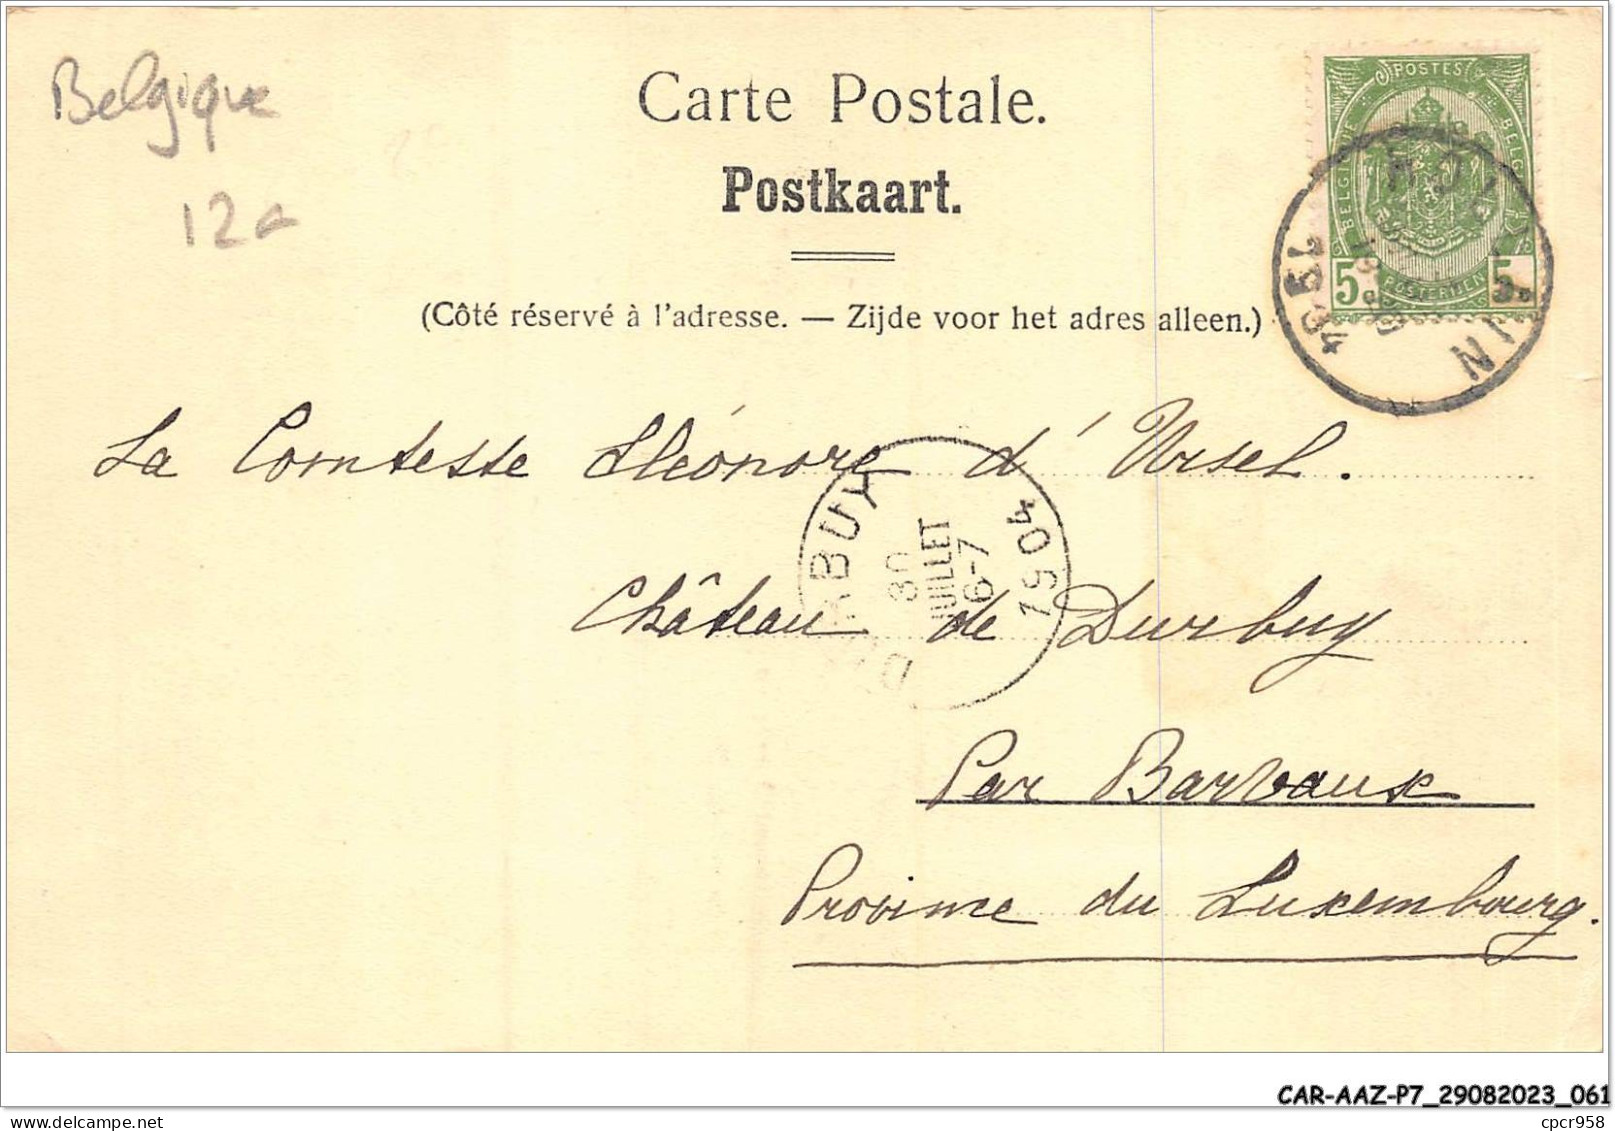 Belgique
12€
Carte Postale.
Postkaart.
POSTES
BELGIQUE
BELGIË
POSTERIJEN
5c
5c
(Côté réservé à l'adresse. — Zijde voor het adres alleen.)
La Comtesse Eléonore d'Ursel.
DURBUY
30
JUILLET
6-7
1904
Château de Durbuy
Par Barvaux
Province du Luxembourg.
CAR-AAZ-P7_29082023_061
cpcr958